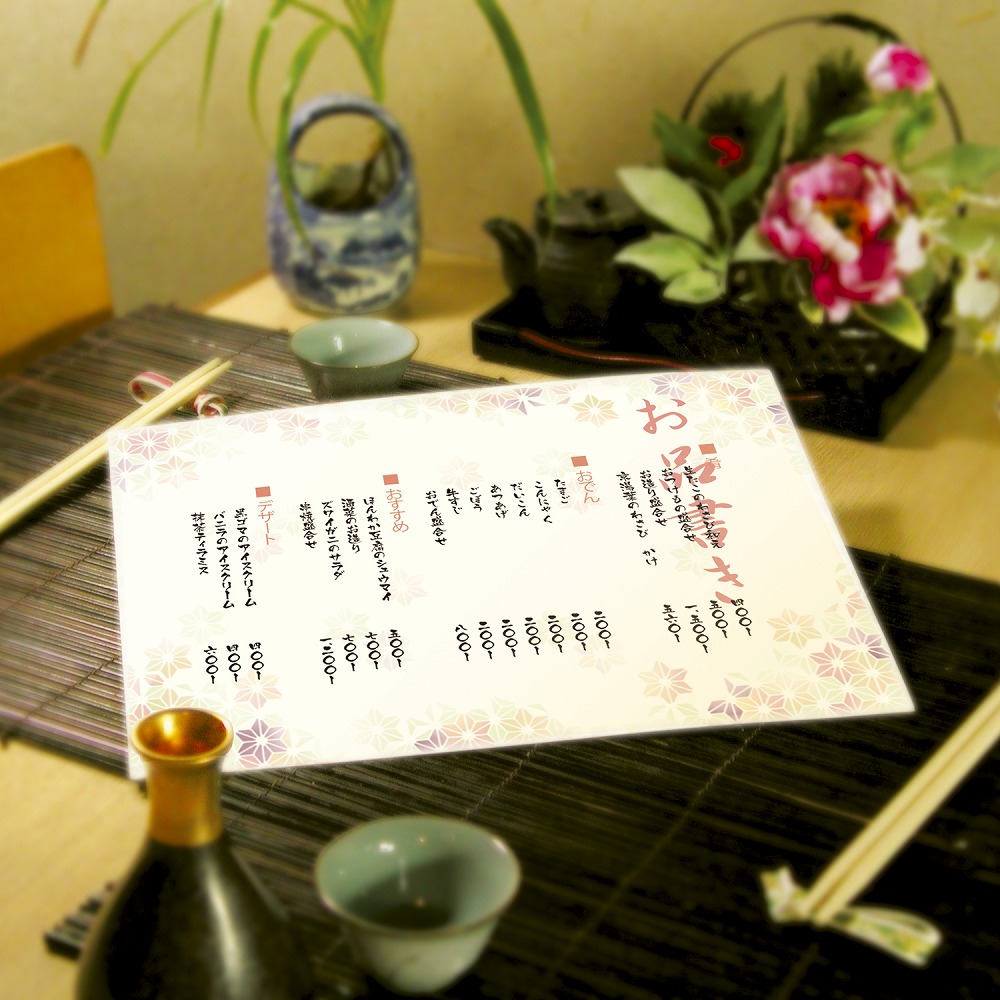 お品書き
■肴
生たこのわさび和え 四〇〇-
おつけもの盛合せ 五〇〇-
お造り盛合せ 一、五〇〇-
京湯葉のわさび かけ 五六〇-
■おでん
たまご 二〇〇-
こんにゃく 二〇〇-
だいこん 二〇〇-
あつあげ 二〇〇-
ごぼう 二〇〇-
牛すじ 二〇〇-
おでん盛合せ 八〇〇-
■おすすめ
ほんわか豆腐のシュウマイ 五〇〇-
湯葉のお造り 七〇〇-
ズワイガニのサラダ 七〇〇-
串焼盛合せ 一二〇〇-
■デザート
黒ゴマのアイスクリーム 四〇〇-
バニラのアイスクリーム 四〇〇-
抹茶ティラミス 六〇〇-